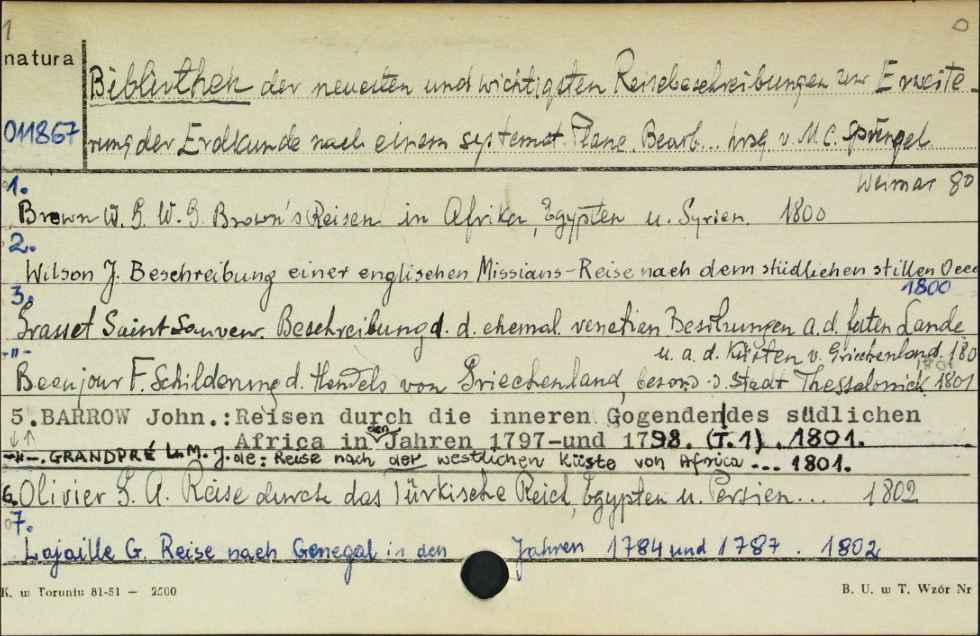 1 0
natura
Bibliothek der neuesten und wichtigsten Reisebeschreibungen zur Erweite-
011867 rung der Erdkunde nach einem systemat. Plane. Bearb... hrsg. v. M.C. Sprengel
Weimar 80
1.
Brown W. G. W. G. Brown's Reisen in Afrika, Egypten u. Syrien. 1800
2.
Wilson J. Beschreibung einer englischen Missians-Reise nach dem südlichen stillen Ocea
1800
3.
Grasset Saint Sauveur. Beschreibung d. d. ehemal. venetian Besitzungen a. d. festen Lande
-"- u. a. d. Küsten v. Griechenland. 180
Beaujour F. Schilderung d. Handels von Griechenland besond. d. Stadt Thessalonich 1801
5. BARROW John.: Reisen durch die inneren Gogenden des südlichen
Africa in den Jahren 1797-und 1798. (T.1) . 1801.
-"-. GRANDPRÉ L. M. J. de: Reise nach der westlichen Küste von Africa ... 1801.
6. Olivier G. A. Reise durch das Türkische Reich, Egypten u. Persien... 1802
7.
Lajaille G. Reise nach Genegal in den Jahren 1784 und 1787 . 1802
K. w Toruniu 81-51 — 2500 B. U. w T. Wzór Nr